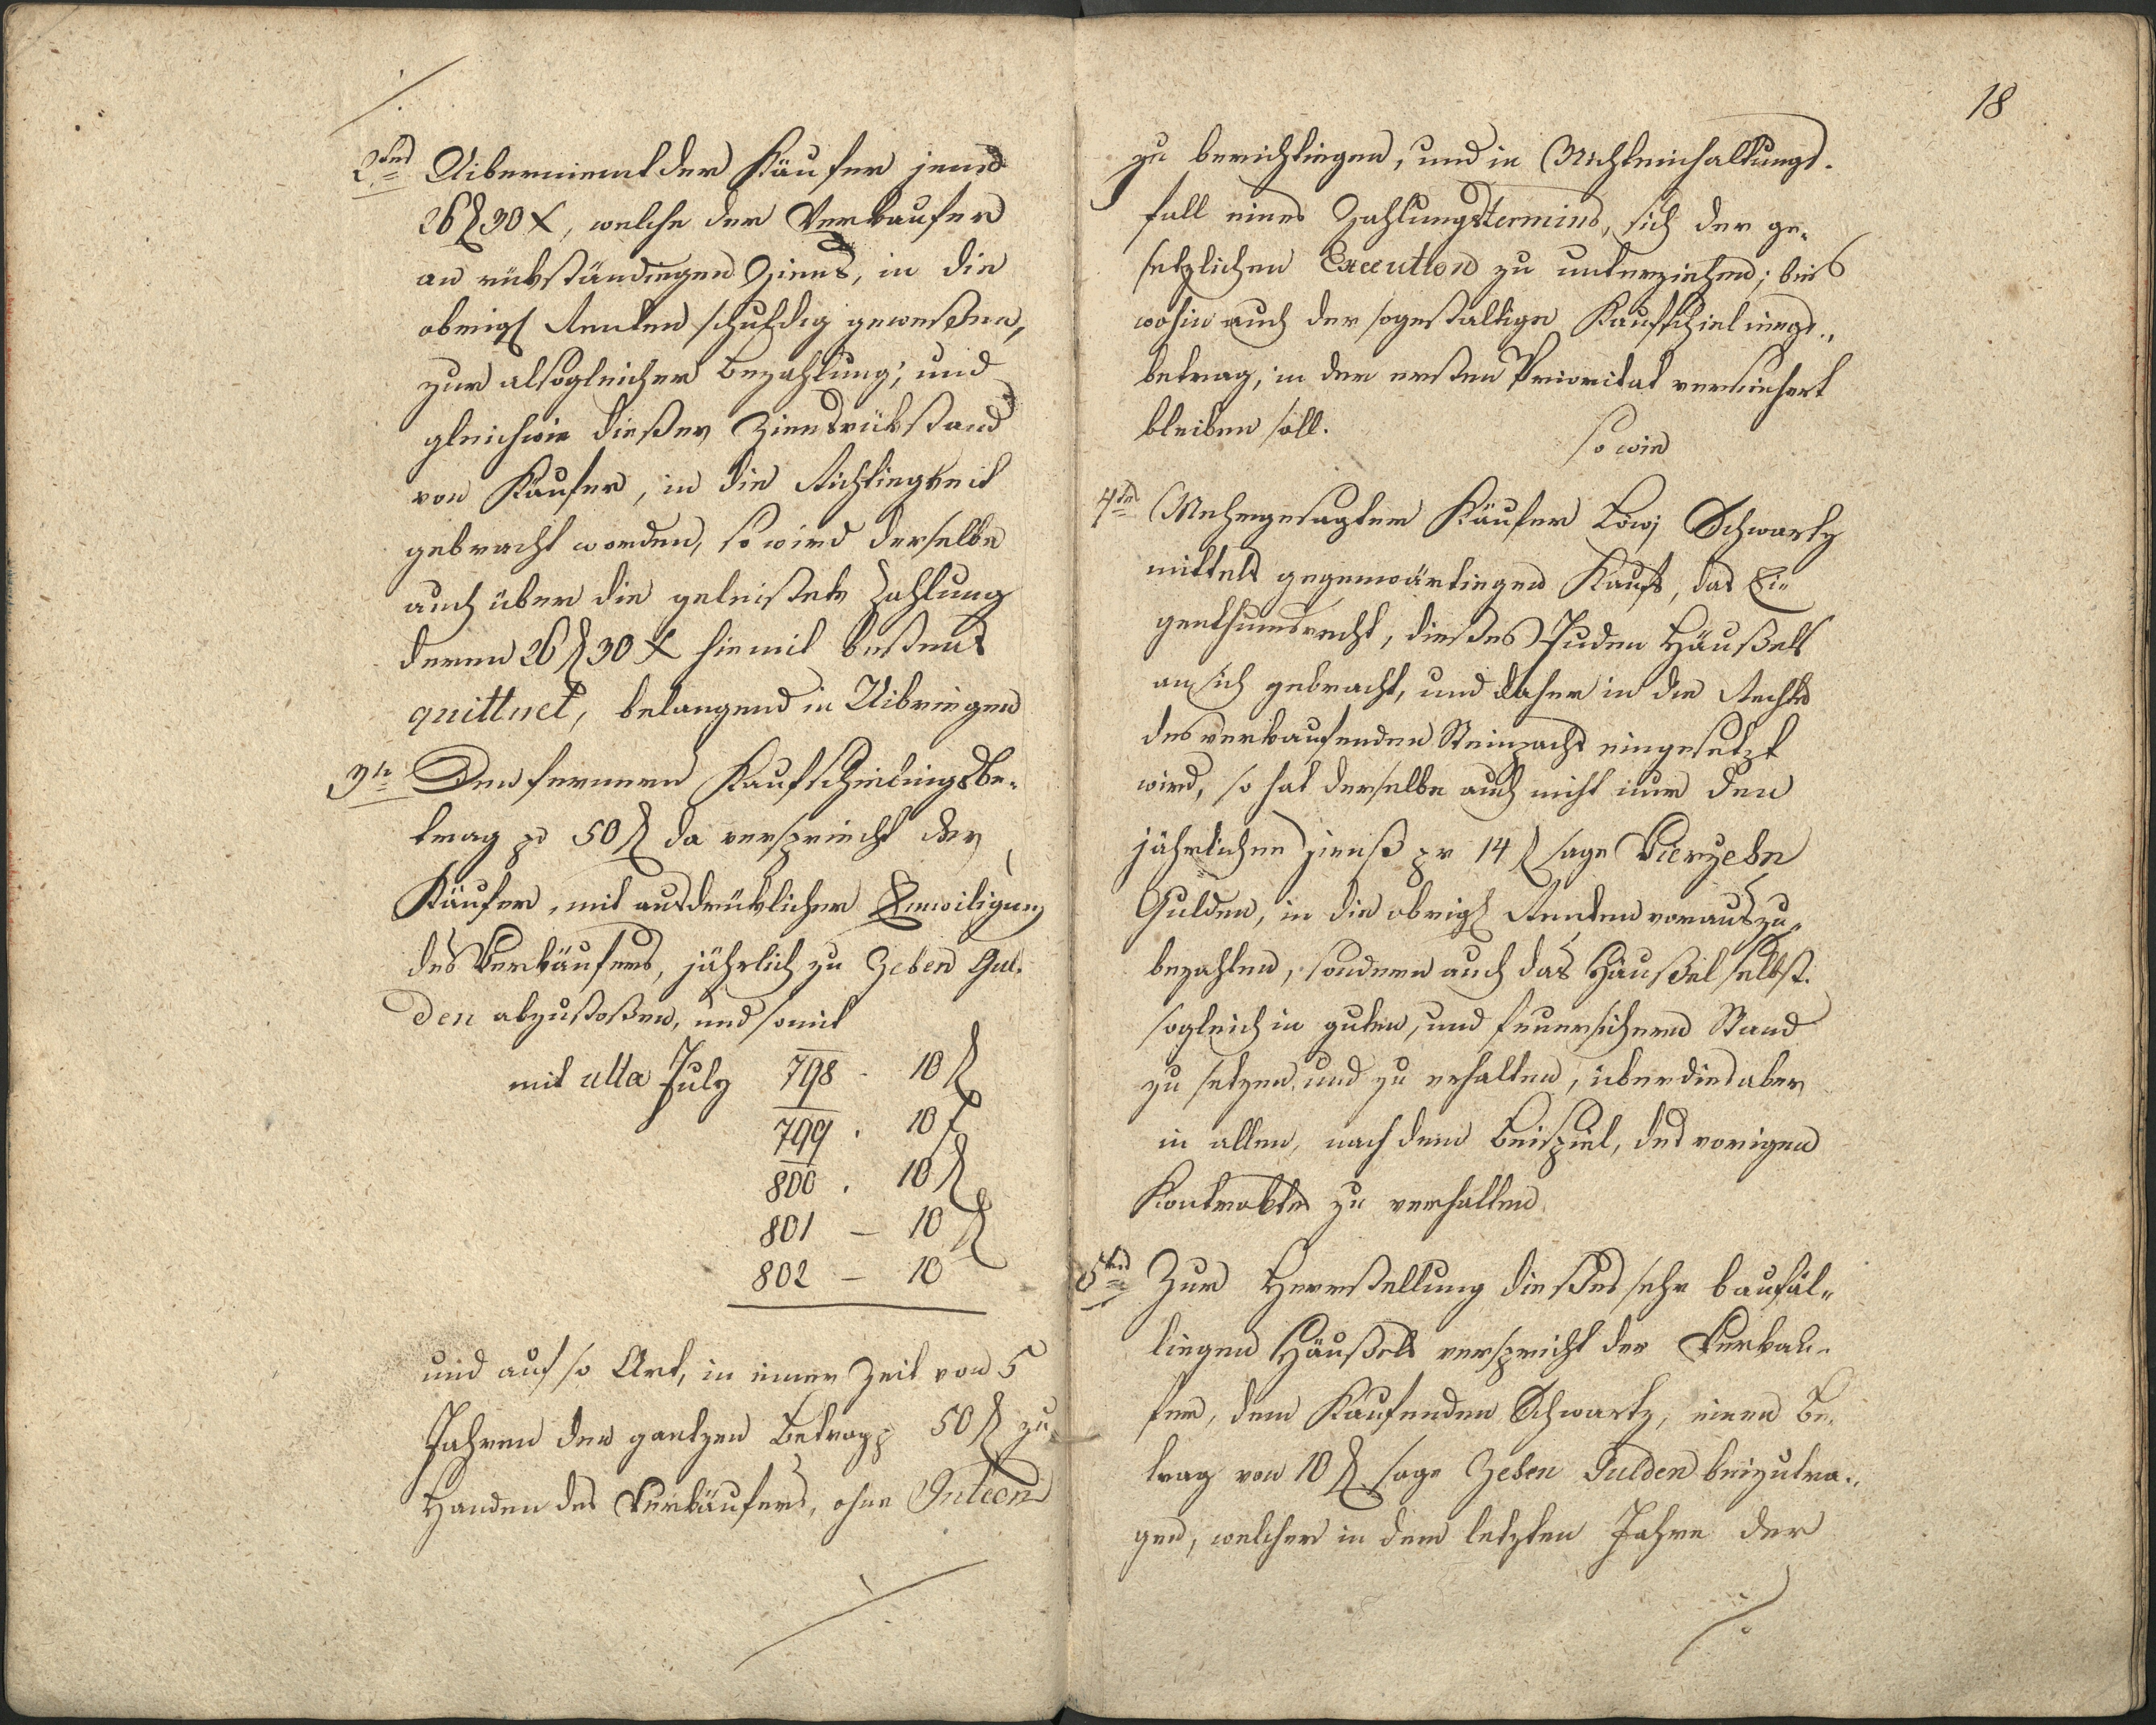 2tens Uiberniemt der Käufer jene
26 f 30 x, welche der Verkaufer
an rükständigen Ziens, in die
obrigk Renten schuldig gewesßen,
zur alsogleicher Bezahlung; und
gleichwie dießer Ziensrükstand
von Käufer, in die Richtiegkeit
gebracht worden, so wird derselbe
auch über die geleistete Zahlung
deren 26 f 30 x hiemit bestens
quittuet, belangend in Uibriegen
3tn Den fernern Kaufschielingsbe-
trag pr 50 f da verspriecht der
Käufer, mit ausdrüklicher Einwiligung
des Verkäufers, jährlich zu Zehen Gul-
den abzustoßen, und somit
mit ulta July 798 - 10 f
799 . 10 f
800 . 10 f
801 - 10 f
802 - 10
und auf so Art, in einer Zeit von 5
Jahren den gantzen Betrag p 50 f zu
Handen des Verkäufers, ohne
18
zu berichtiegen, und in Nichteinhaltungs-
fall eines Zahlungstermins, sich der ge-
setzlichen Execution zu unterziehen; bis
wohin auch der sogestaltige Kaufschielings-
betrag, in der ersten Prioritat versichert
bleiben soll.
So wie
4tens Mehrgesagter Käufer Löwj Schwartz
mittels gegenwärtiegen Kaufs, das Ei-
genthumsrecht, dießes Juden Häußels
an sich gebracht, und daher in die Rechte
des verkaufenden Steinzacht eingesetzt
wird, so hat derselbe auch nicht nur den
jährlichen Zienß pr 14 f sage Vierzehn
Gulden, in die obrigk Renten vorauszu-
bezahlen, sondern auch das Häußel selbst
sogleich in guten, und feuersichern Stand
zu setzen, und zu erhalten, überdies aber
in allen, nach dem Beispiel, des vorigen
Kontrakts zu verhalten.
5tens Zur Herrstellung dießes sehr baufäl-
liegen Häußels verspricht der Verkau-
fer, dem Kaufenden Schwartz, einen Be-
trag von 10 f sage Zehen Gulden beizutra-
gen, welcher in dem letzten Jahre der